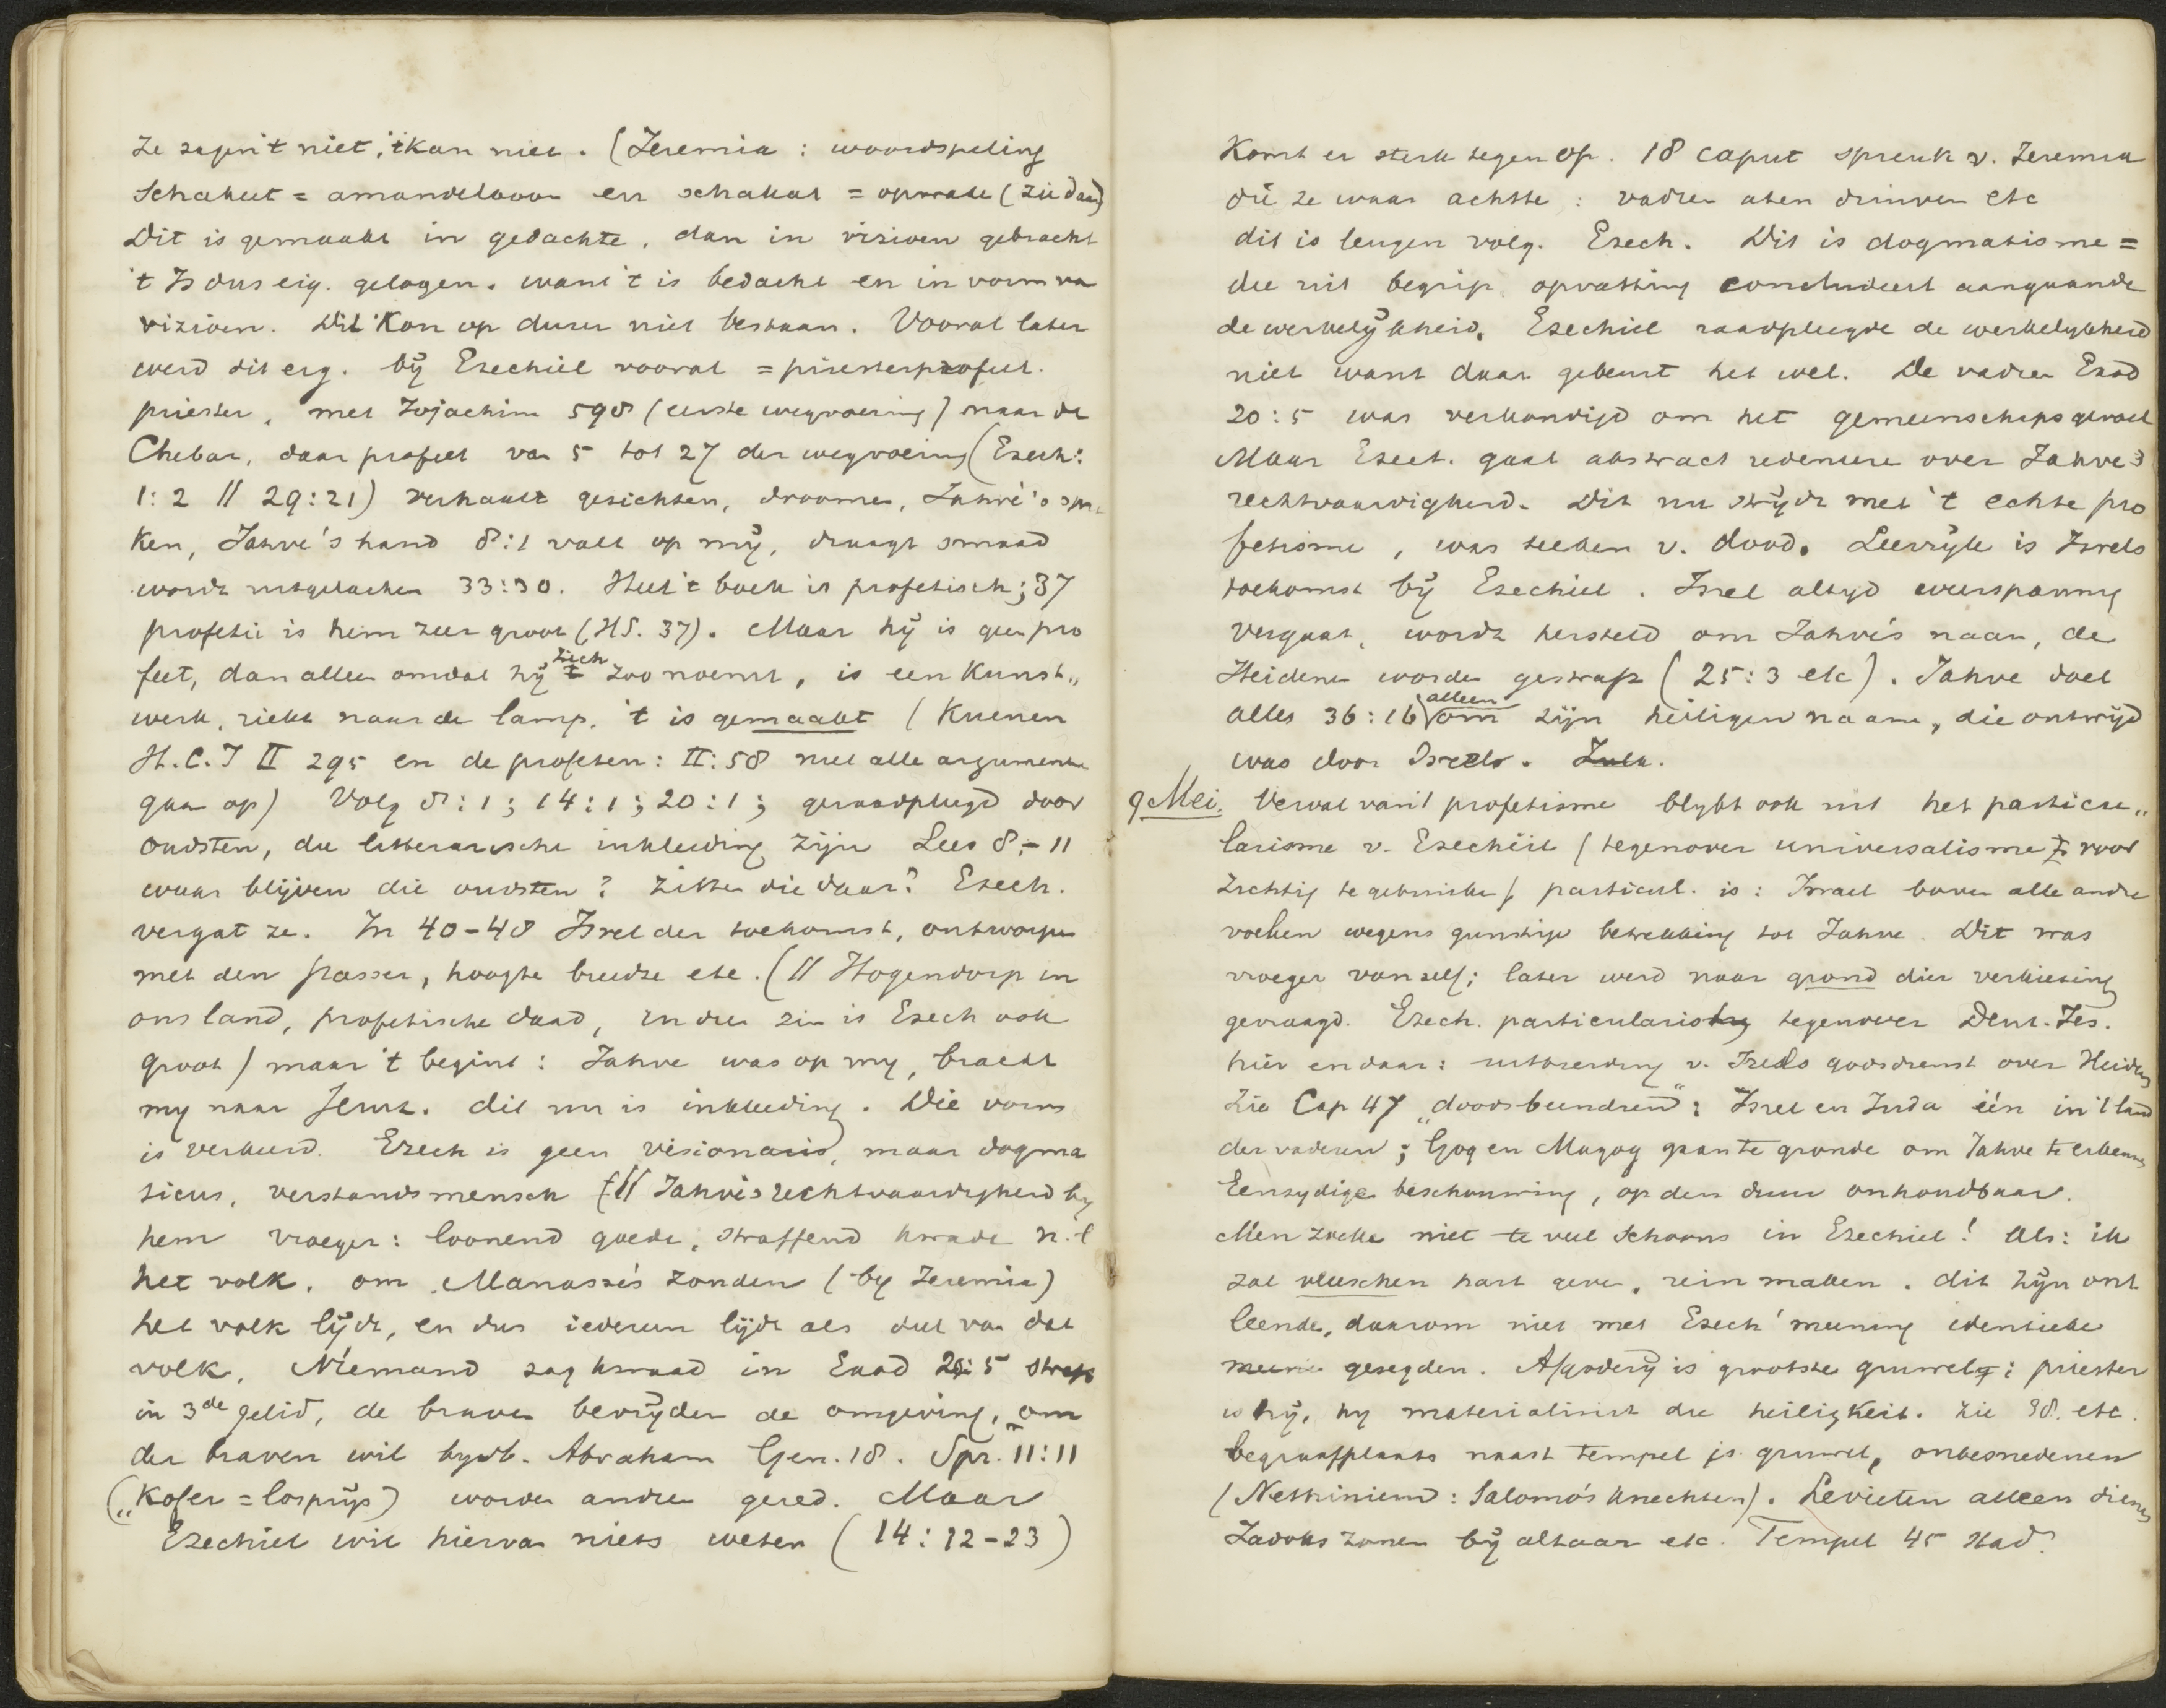 ze zagen 't niet, 't kan niet. (Jeremia: woordspeling
Schaket = amandelboom en schakat = opwake (zie daar)
Dit is gemaakt in gedachte, dan in vizioen gebracht
't Is dus eig. gelogen. want 't is bedacht en in vorm van
vizioen. Dit kon op duur niet bestaan. Vooral later
werd dit erg. bij Ezechiel vooral = priesterprofeet.
priester, met Jojachim 598 (eerste wegvoering) naar de
Chebar, daar profeet van 5 tot 27 der wegvoering (Ezech:
1:2 // 29:21) verhaalt gezichten, droomen, Jahvé's spre
ken, Jahve's hand 8:1 valt op mij, draagt smaad
wordt uitgelachen 33:30. Heel 't boek is profetisch; 37
profetie is hem zeer groot (HS. 37). Maar hij is geen pro
feet, dan alleen omdat hij zich zoo noemt, is een kunst„
werk, riekt naar de lamp, 't is gemaakt (Kuenen
H.C.I II 295 en de profeten: II:58 met alle argumenten
gaan op) Volg 8:1; 14:1; 20:1; geraadpleegd door
oudsten, die litterarische inkleeding zijn Lees 8-11
waar blijven die oudsten? zitten die daar? Ezech.
vergat ze. In 40-48 Isrel der toekomst, ontworpen
met den passer, hoogte breedte etc. (// Hogendorp in
ons land, profetische daad, in dien zin is Ezech ook
groot) maar 't begint: Jahve was op my, bracht
my naar Jeruz. dit nu is inkleeding. Die vorm
is verkeerd. Ezech is geen visionaris, maar dogma
ticus, verstandsmensch (// Jahvé's rechtvaardigheid by
hem vroeger: loonend goede, straffend kwade n.l
het volk, om Manasse's zonden (by Jeremia)
het volk lijdt, en dus iedereen lijdt als deel van dat
volk. Niemand zag kwaad in Exod 20:5 straf
in 3de gelid, de braven bevrijden de omgeving, om
der braven wil byvb. Abraham Gen. 18. Spr. 11:11
(„Kofer = losprijs) worden andren gered. Maar
Ezechiel wil hiervan niets weten (14:12-23)
Komt er sterk tegen op. 18 caput spreuk v. Jeremia
die ze waar achtte: vadren aten druiven etc
dit is leugen volg. Ezech. Dit is dogmatisme =
die uit begrip, opvatting concludeert aangaande
de werkelijkheid. Ezechiel raadpleegde de werkelykheid
niet want daar gebeurt het wel. De vadren Exod
20:5 was verkondigd om het gemeenschapsgevoel
Maar Ezech. gaat abstract redeneren over Jahve's
rechtvaardigheid. Dit nu strijdt met 't echte pro
fetisme, was teeken v. dood. Leerrijk is Isrels
toekomst bij Ezechiel. Isrel altyd weerspannig
vergaat, wordt hersteld om Jahvé's naam, de
Heidenen worden gestraft (25:3 etc). Jahve doet
alles 36:16 alleen om zijn heiligen naam, die ontwijd
was door Isrels.
9 Mei. Verval van 't profetisme blykt ook uit het particu„
larisme v. Ezechiël (tegenover universalisme voor
zichtig te gebruiken) particul. is: Israel boven alle andre
volken wegens gunstige betrekking tot Jahve. Dit was
vroeger vanzelf; later werd naar grond dier verkiezing
gevraagd. Ezech. particularistig tegenover Deut. Jes.
hier en daar: uitbreiding v. Isrels godsdienst over Heidens
Zie Cap 47 „doodsbeendren": Isrel en Juda één in 't land
der vaderen; Gog en Magog gaan te gronde om Jahve te erkennen
Eenzydige beschouwing, op den duur onhoudbaar.
Men zoeke niet te veel Schoons in Ezechiel! Als: ik
zal vleeschen hart geven, rein maken. dit zijn ont
leende, daarom niet met Ezech' meening identieke
gezegden. Afgoderij is grootste gruwel: priester
hij, hy materialiseert die heiligkeit. Zie 38. etc.
begraafplaats naast tempel is gruwel, onbesnedenen
(Nethiniem: Salomo's knechten). Levieten alleen dienen
Zadoks zonen bij altaar etc. Tempel 45 stad?